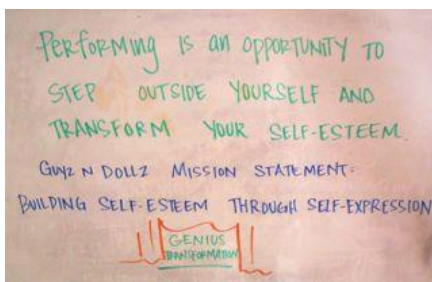 PERFORMING IS AN OPPORTUNITY TO
STEP OUTSIDE YOURSELF AND
TRANSFORM YOUR SELF-ESTEEM.
GUYZ N DOLLZ MISSION STATEMENT:
BUILDING SELF-ESTEEM THROUGH SELF-EXPRESSION
GENIUS
TRANSFORMATION